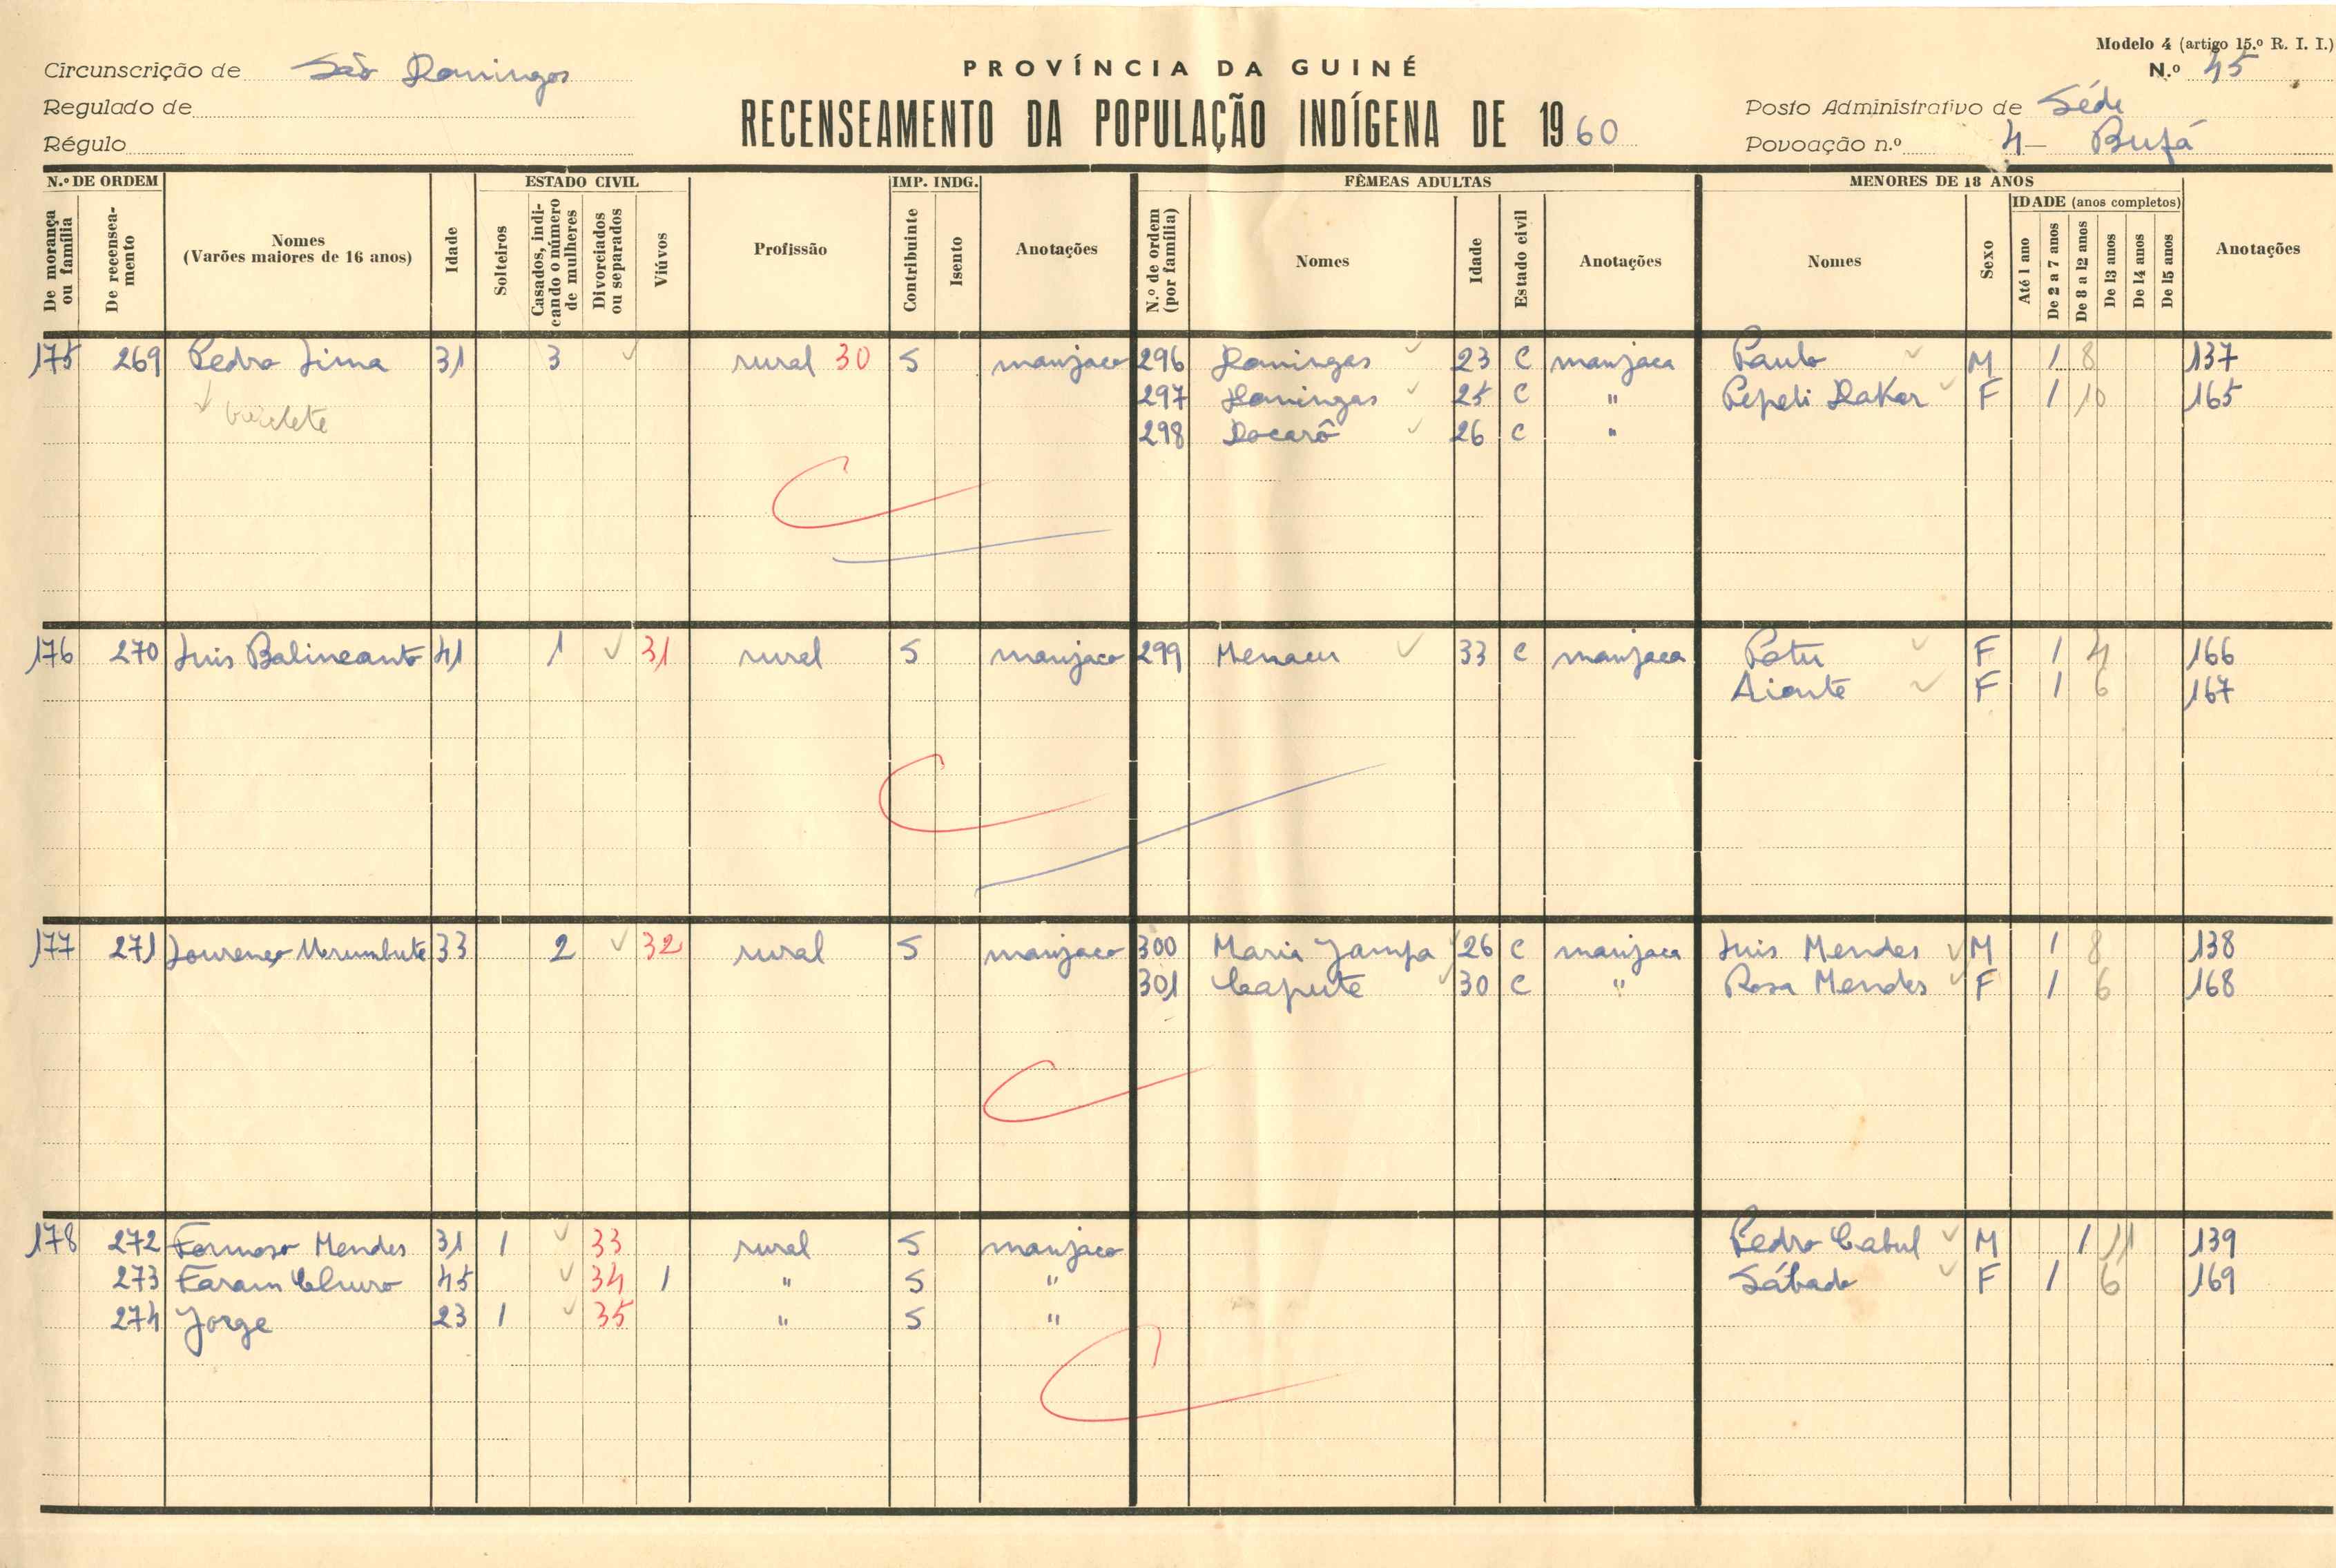 Modelo 4 (artigo 15.º R. I. I.)
Circunscrição de São Domingos
PROVÍNCIA DA GUINÉ
N.º 45
Regulado de
RECENSEAMENTO DA POPULAÇÃO INDÍGENA DE 1960
Posto Administrativo de Séde
Régulo
Povoação n.º 4 – Bufá
N.º DE ORDEM
ESTADO CIVIL
IMP. INDG.
FÊMEAS ADULTAS
MENORES DE 18 ANOS
De morança ou família
De recenseamento
Nomes
(Varões maiores de 16 anos)
Idade
Solteiros
Casados, indicando o número de mulheres
Divorciados ou separados
Viúvos
Profissão
Contribuinte
Isento
Anotações
N.º de ordem (por família)
Nomes
Idade
Estado civil
Anotações
Nomes
Sexo
IDADE (anos completos)
Até 1 ano
De 2 a 7 anos
De 8 a 12 anos
De 13 anos
De 14 anos
De 15 anos
Anotações
175 269 Pedro Lima 31 3 rural 30 S manjaco 296 Domingas 23 C manjaca Paulo M 1 8 137
297 Domingas 25 C " Pepeli Dakar F 1 10 165
298 Docarô 26 C "
176 270 Luis Balineante 41 1 31 rural S manjaco 299 33 C manjaca Patu F 1 4 166
F 1 6 167
177 271 Lourenço 33 2 32 rural S manjaco 300 Maria Jampa 26 C manjaca Luis Mendes M 1 8 138
301 Capute 30 C " Rosa Mendes F 1 6 168
178 272 Formoso Mendes 31 1 33 rural S manjaco Pedro Cabul M 1 11 139
273 Faram Churo 45 34 1 " S " Sábado F 1 6 169
274 Jorge 23 1 35 " S "